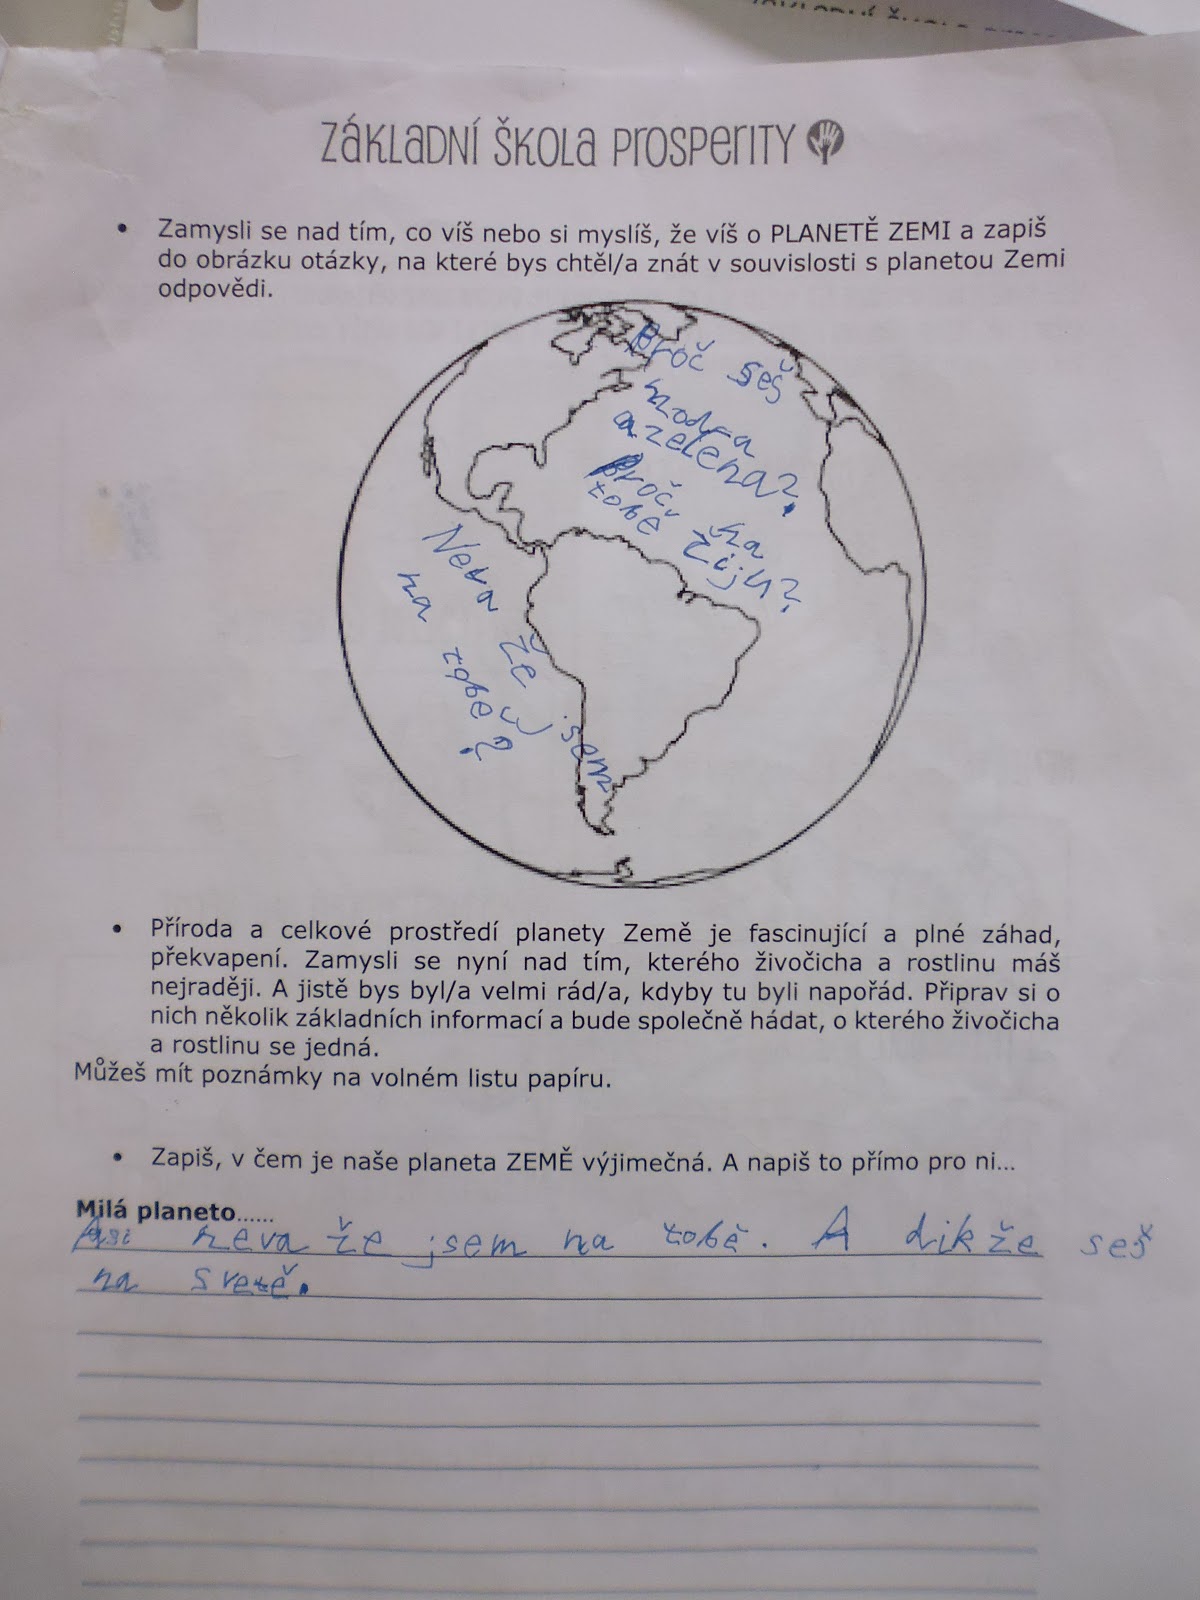 Základní škola Prosperity
• Zamysli se nad tím, co víš nebo si myslíš, že víš o PLANETĚ ZEMI a zapiš
do obrázku otázky, na které bys chtěl/a znát v souvislosti s planetou Zemi
odpovědi.
Proč seš
modra
a zelena?
Proč na
tobě žiju?
Neva že jsem
na tobě?
• Příroda a celkové prostředí planety Země je fascinující a plné záhad,
překvapení. Zamysli se nyní nad tím, kterého živočicha a rostlinu máš
nejraději. A jistě bys byl/a velmi rád/a, kdyby tu byli napořád. Připrav si o
nich několik základních informací a bude společně hádat, o kterého živočicha
a rostlinu se jedná.
Můžeš mít poznámky na volném listu papíru.
• Zapiš, v čem je naše planeta ZEMĚ výjimečná. A napiš to přímo pro ni...
Milá planeto......
Asi neva že jsem na tobě. A dik že seš
na svetě.